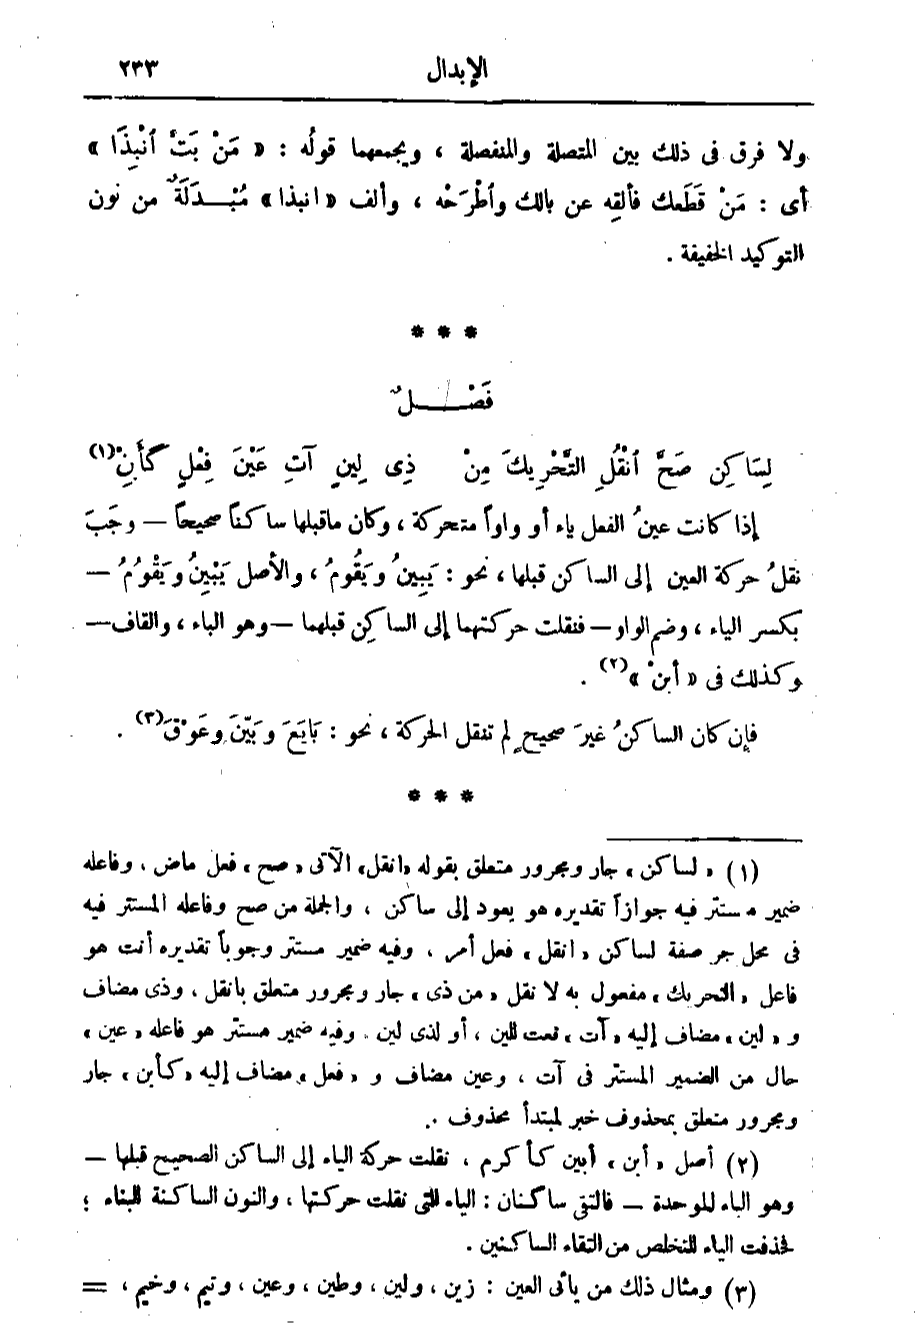 الإبدال ٢٣٣
ولا فرق فى ذلك بين المتصلة والمنفصلة ، ويجمعهما قولُه : « مَنْ بَتَّ ٱنْبِذَا »
أى : مَنْ قَطَعك فألقِه عن بالك وٱطْرَحْه ، وألف « انبذا » مُبْـدَلَةٌ من نون
التوكيد الخفيفة .
* * *
فَصْـلٌ
لِسَاكِنٍ صَحَّ ٱنْقُلِ التَّحْرِيكَ مِنْ ذِى لِينٍ آتٍ عَيْنَ فِعْلٍ كَأَبِنْ (١)
إذا كانت عينُ الفعل ياء أو واواً متحركة ، وكان ماقبلها ساكناً صحيحاً — وجَبَ
نقلُ حركة العين إلى الساكن قبلها ، نحو : يَبِينُ ويَقُومُ ، والأصل يَبْيِنُ ويَقْوُمُ —
بكسر الياء ، وضم الواو — فنقلت حركتهما إلى الساكن قبلهما — وهو الباء ، والقاف —
وكذلك فى « أبنْ » (٢) .
فإن كان الساكنُ غيرَ صحيحٍ لم تنقل الحركة ، نحو : بَايَعَ وبَيَّنَ وعَوَّقَ (٣) .
* * *
(١) « لساكن » جار ومجرور متعلق بقوله « انقل » الآتى « صح » فعل ماض ، وفاعله
ضمير مستتر فيه جوازاً تقديره هو يعود إلى ساكن ، والجملة من صح وفاعله المستتر فيه
فى محل جر صفة لساكن « انقل » فعل أمر ، وفيه ضمير مستتر وجوباً تقديره أنت هو
فاعل « التحريك » مفعول به لا نقل « من ذى » جار ومجرور متعلق بانقل ، وذى مضاف
و « لين » مضاف إليه « آت » نعت للين ، أو لذى لين . وفيه ضمير مستتر هو فاعله « عين »
حال من الضمير المستتر فى آت ، وعين مضاف و « فعل » مضاف إليه « كأبن » جار
ومجرور متعلق بمحذوف خبر لمبتدأ محذوف .
(٢) أصل « أبن » أبين كأكرم ، نقلت حركة الياء إلى الساكن الصحيح قبلها —
وهو الباء الموحدة — فالتقى ساكنان : الياء التى نقلت حركتها ، والنون الساكنة للبناء ؛
فحذفت الياء للتخلص من التقاء الساكنين .
(٣) ومثال ذلك من يائى العين : زين ، ولين ، وطين ، وعين ، وتيم ، وخيم ، =